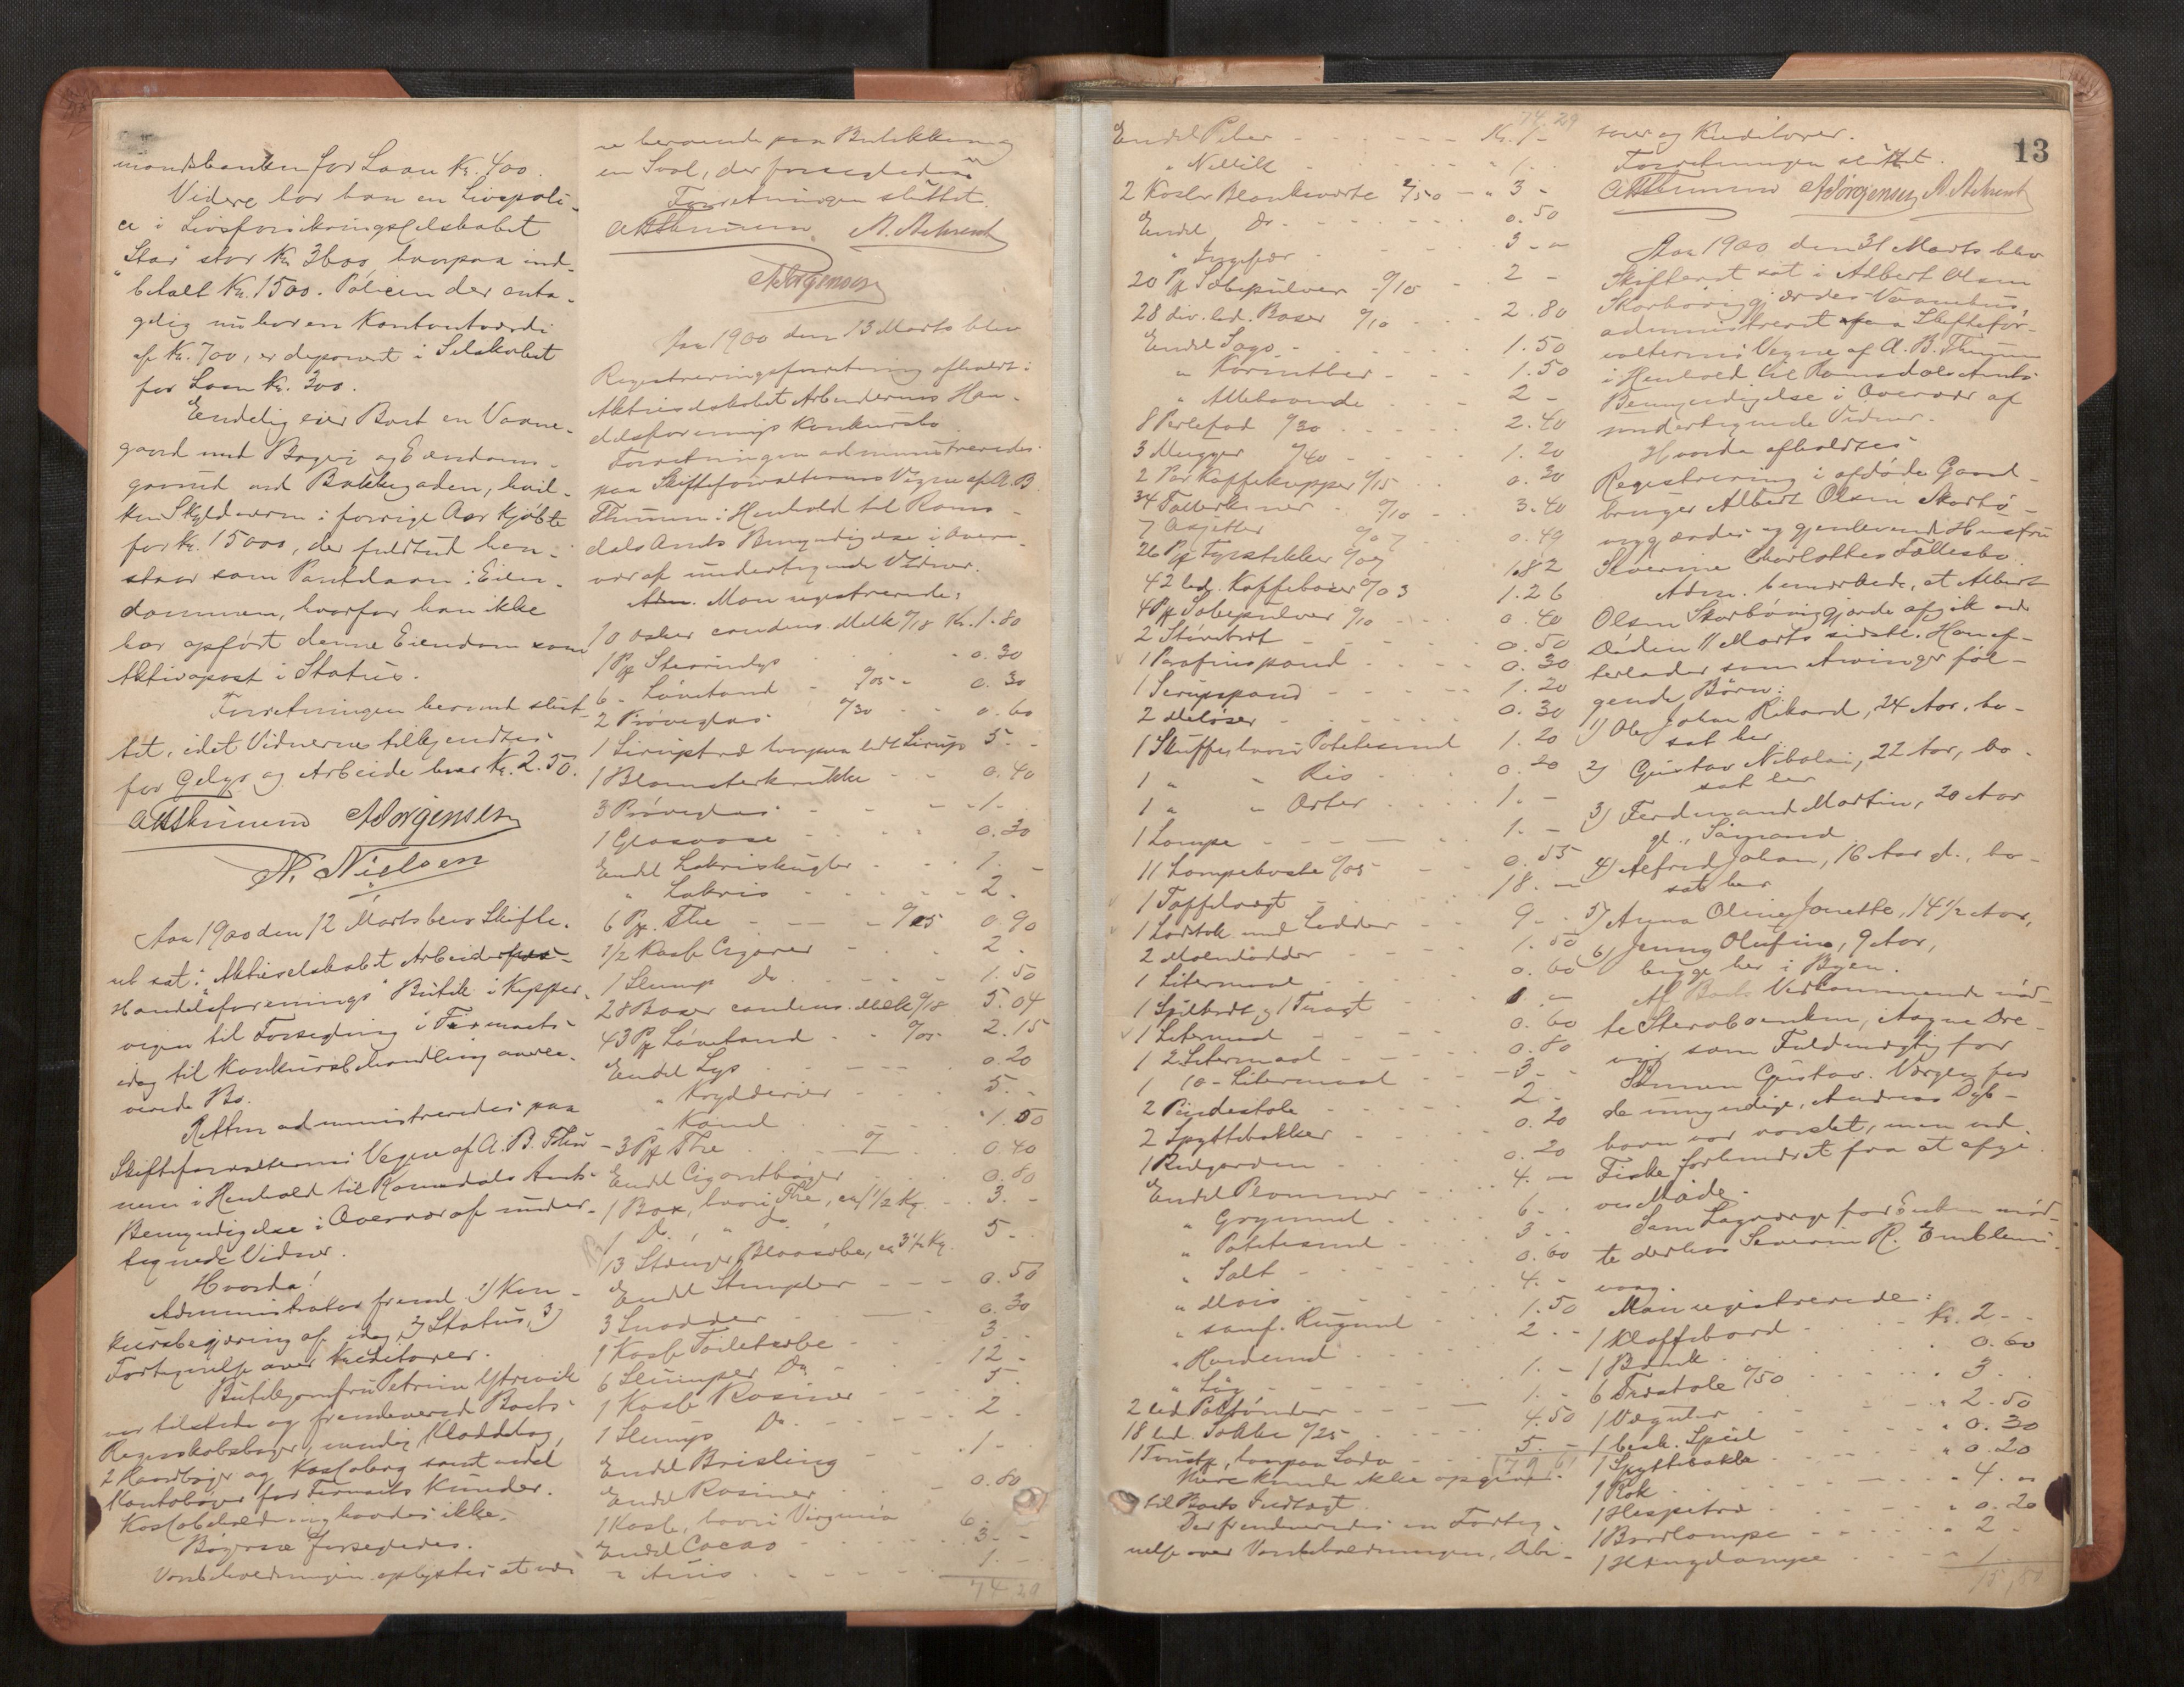 mandsbanken for Laan Kr. 400.
Videre har han en Livspoli-
ce i Livsforsikringsselskabet
"Star" stor Kr. 3600, hvorpaa ind-
betalt Kr. 1500. Policen der anta-
gelig nu har en Kontantværdi
af Kr. 700, er deponeret i Selskabet
for Laan Kr. 300.
Endelig eier Boet en Vaane-
gaard med Bageri og Eiendoms-
grund ved Bakkegaden, hvil-
ken Skyldneren i forrige Aar kjøbte
for Kr. 15000, der fuldtud hen-
staar som Pantelaan i Eien-
dommen, hvorfor han ikke
har opført denne Eiendom som
Aktivapost i Status.
Forretningen herved slut-
tet, idet Vidnerne tilkjendtes
for Gelys og Arbeide hver Kr. 2.50.
A B Thumm A Jørgensen
N. Nielsen
Aar 1900 den 12 Marts blev Skifte-
ret sat i "Aktieselskabet Arbeider
Handelsforenings" Butik i Kipper-
vegen til Forsegling i Firmaets
idag til Konkursbehandling overle-
verede Bo.
Retten administreredes paa
Skifteforvalterens Vegne af A. B. Thu-
mm i Henhold til Romsdals Amts
Bemyndigelse i Overvær af under-
tegnede Vidner.
Hvorda!
Administrator freml. 1) Kon-
kursbegjæring af idag, 2) Status, 3)
Fortegnelse over Kreditorer.
Butikjomfru Petrine Ytrevik
var tilstede og fremleverede Boets
Regnskabsbøger, nemlig Kladdebog,
2 Haandbøger og Kassabog samt endel
Kontobøger for Firmaets Kunder.
Kassabeholdning havdes ikke.
Bøgerne forsegledes.
Varebeholdningen oplystes at væ-
re beroende paa Butikken og
en Svol, der forsegledes.
Forretningen sluttet.
A B Thumm A. Aekrent
A Jørgensen
Aar 1900 den 13 Marts blev
Registreringsforretning afholdt i
Aktieselskabet Arbeidernes Han-
delsforenings Konkursbo.
Forretningen administreredes
paa Skifteforvalterens Vegne af A. B.
Thumm i Henhold til Roms-
dals Amts Bemyndigelse i Over-
vær af undertegnede Vidner.
Adm. Man registrerede:
10 æsker condens. Melk a/18 Kr. 1.80
1 Pk Stearinlys 0.30
6 - Løvetand a/05 0.30
2 Prøveglas a/30 0.60
1 Siruptræ hvorpaa lidt Sirup 5.-
1 Blomsterkrukke 0.40
3 Prøveglas 1.-
1 Glasvase 0.30
Endel Lakriskugler 1.-
" Lakris 2.
6 Pk. The a/15 0.90
1/2 Kasse Cigarer 2.
1 Slump Do 1.50
28 Boxer condens. Melk a/18 5.04
43 Pk Løvetand a/05 2.15
Endel Lys 0.20
" Krydderier 5.-
" Kanel 1.50
3 Pk The 0.40
Endel Cigaretbøger 0.80
1 Box, hvori The, ca 1 1/2 Kg. 3.-
1 Do. " Do 5.-
13 Stænger Blaasæbe, ca 3 1/2 Kg.
Endel Stempler 0.50
3 Snadder 0.30
1 Kasse Toiletsæbe 3.
6 Slumper Do 12.-
1 Kasse Rosiner 5.
1 Slump Do. 2.
Endel Brisling 1.-
Endel Rosiner 0.80
1 Kasse, hvori Virginia 6.
Endel Cacao 3.-
" Anis 1.-
74 29
74.29
Endel Peber Kr. 1-
" Nellik 1.
2 Kasser Blanksværte a/1.50 3-
Endel Do 0.50
" Ingefær 3.-
20 Pk Sæbepulver a/10 2-
28 div. led. Boxer a/10 2.80
Endel Sago 1.50
" Korinther 1.50
" Allehaande 2-
8 Perlefad a/30 2.40
3 Mugger a/40 1.20
2 Par Kaffekopper a/15 0.30
34 Tallerkener a/10 3.40
7 Asjetter a/07 0.49
26 Pk Fyrstikker a/07 1.82
42 led. Kaffeboxer a/03 1.26
4 Pk Sæbepulver a/10 0.40
2 Stentræt 0.50
1 Parafinspand 0.30
1 Sirupspand 1.20
2 Meløser 0.30
1 Skuffe, hvori Potetesmel 1.20
1 " " Ris 0.20
1 " " Erter 1.-
1 Lampe 1.-
11 Lampekoste a/05 0.55
1 Taffelvægt 18.-
1 Lodstok med Lodder 9-
2 Malmlodder 1.50
1 Litermaal 0.60
1 Spilbrdt, 1 Tragt 1.-
1 Litermaal 0.60
1 2 Litermaal 0.80
1 10-Litermaal 3-
2 Pindestole 2-
2 Spyttebakker 0.20
1 Rulgardin 0.20
Endel Plommer 4.-
" Grynmel 6-
" Potetesmel 3-
" Salt 0.60
" Mais 4.-
" samf. Rugmel 1.50
" Hvedemel 2-
" Løg 1.-
2 led Paltønder 1.-
18 led. Sække a/25 4.50
1 Tønde, hvorpaa Soda 5.-
Mere kunde ikke opgives
til Boets Indtægt.
Der fremleveredes en Forteg-
nelse over Varebeholdningen, Debi-
torer og Kreditorer.
Forretningen sluttet.
A B Thumm A Jørgensen A. Aekrent
13
Aar 1900 den 31 Marts blev
Skifteret sat i Albert Olsen
Skarbøviggjærdes Vaanehus,
administreret paa Skiftefor-
valterens Vegne af A. B. Thumm
i Henhold til Romsdals Amts
Bemyndigelse i Overvær af
undertegnede Vidner.
Hvorda afholdtes
Registrering i afdøde Gaard-
bruger Albert Olsen Skarbø-
viggjærdes og gjenlevende Hustru
Severine Charlottes Fællesbo.
Adm. bemærkede, at Albert
Olsen Skarbøviggjærde afgik ved
Døden 11 Marts sidstl. Han ef-
terlader som Arvinger føl-
gende Børn:
1) Ole Johan Rikard, 24 Aar, bo-
sat her.
2) Gustav Nikolai, 22 Aar, bo-
sat her
3) Ferdinand Martin, 20 Aar
gl., Sømand
4) Alfred Johan, 16 Aar gl., bo-
sat her
5) Anna Oline Jonette, 14 1/2 Aar,
6) Jenny Olufine, 9 Aar,
begge her i Byen.
Af Boets Vedkommende mød-
te Sterboenken, Aagne Dre-
vik som Fuldmægtig for
Sønnen Gustav. Værgen for
de umyndige, Andreas Dyb-
havn var varslet, men ved
Fiske forhindret fra at afgi-
ve Møde.
Som Lagværge for Enken mød-
te derhos Severin R. Emblems-
vaag.
Man registrerede:
1 Klaffebord Kr. 2-
1 Bænk 0.60
6 Træstole a/50 3
1 Væguhr 2.50
1 besk. Speil 0.30
1 Spyttebakke 0.20
1 Rok 4.-
1 Hespetræ 0.20
1 Bordlampe 2-
1 Hængelampe 1.
15,80